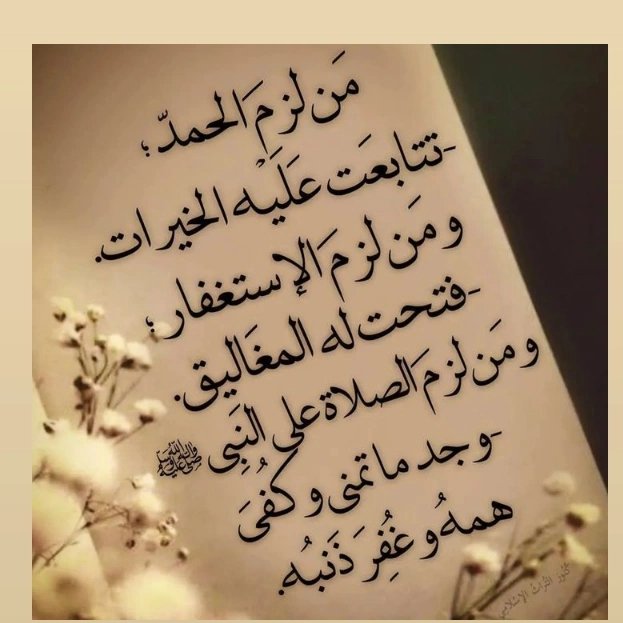 مَن لزمَ الحمدّ؛
-تتابعَت عَلَيْه الخيرات.
ومَن لزمَ الإستغفار؛
-فتحت له المغَاليق.
ومَن لزمَ الصلاة على النَبِى ﷺ
-وجد ما تمنى وكُفىَ
همهُ وغُفِرَ ذَنبُه.
كنوز التراث الإسلامي